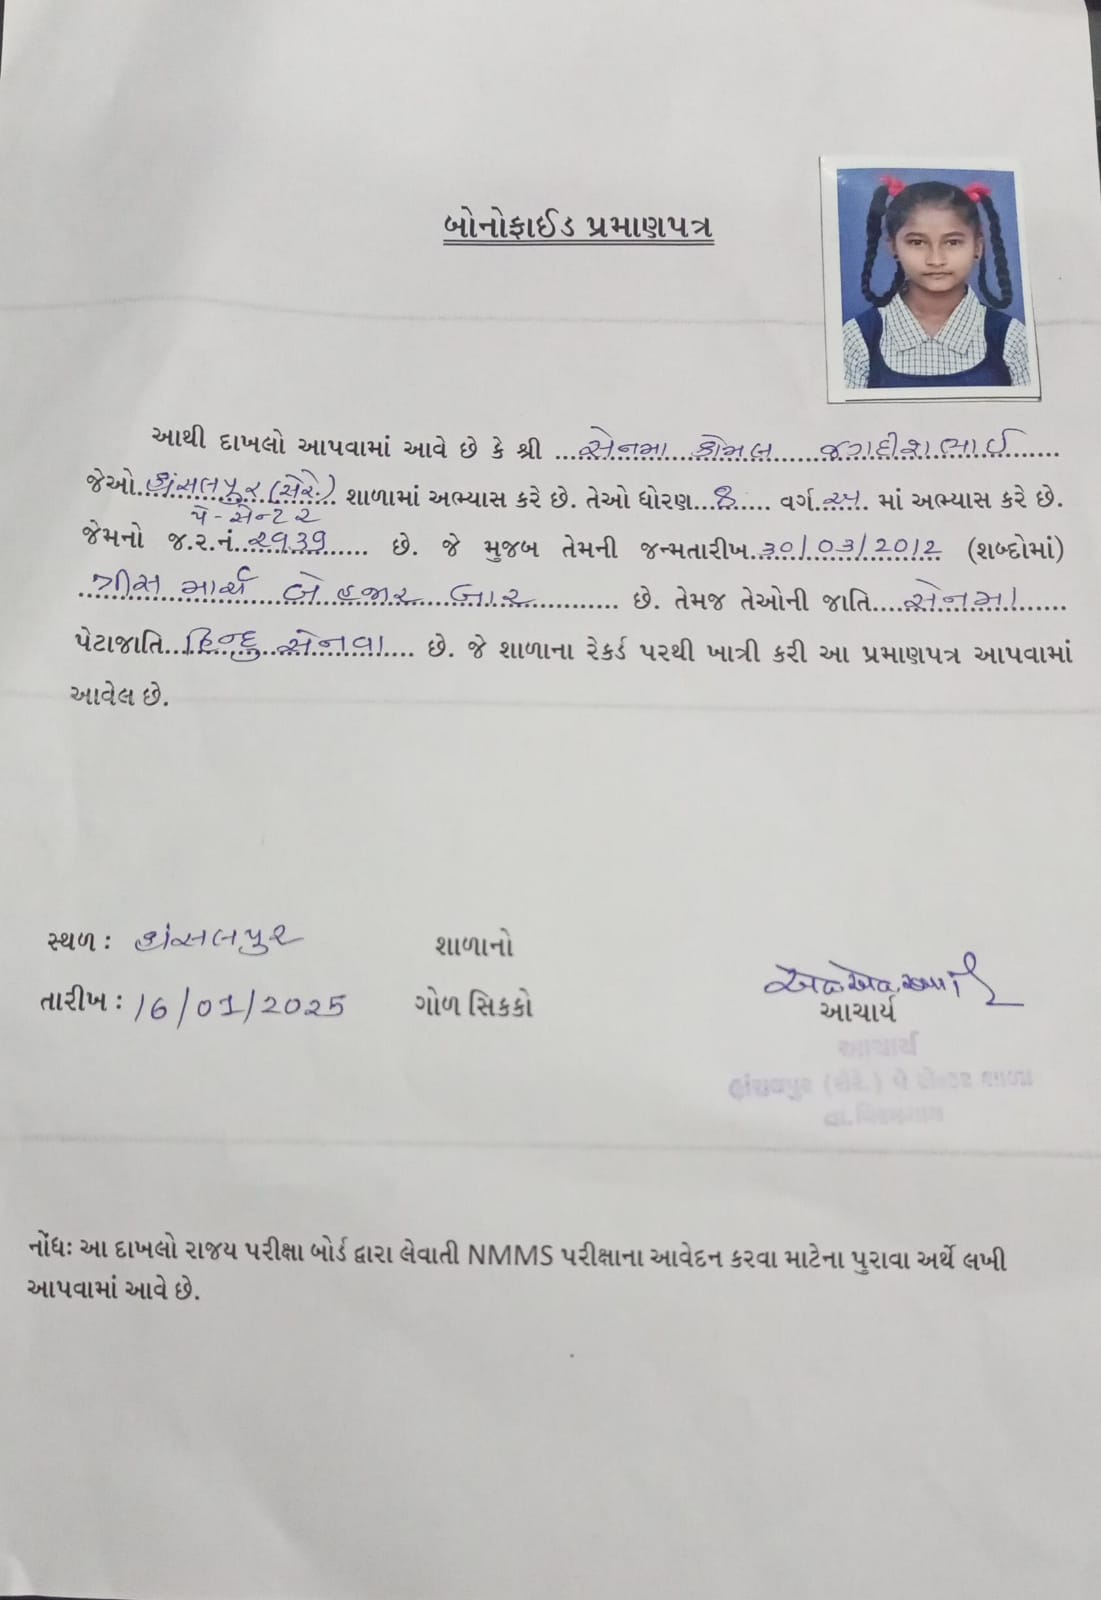 બોનોફાઈડ પ્રમાણપત્ર
આથી દાખલો આપવામાં આવે છે કે શ્રી ...સેનમા કોમલ જગદીશભાઈ......
જેઓ..હાંસલપુર (સેરે.) શાળામાં અભ્યાસ કરે છે. તેઓ ધોરણ...8.... વર્ગ..અ.. માં અભ્યાસ કરે છે.
પે-સેન્ટર
જેમનો જ.ર.નં..2939....... છે. જે મુજબ તેમની જન્મતારીખ..30/03/2012 (શબ્દોમાં)
..ત્રીસ માર્ચ બે હજાર બાર............ છે. તેમજ તેઓની જાતિ....સેનમા......
પેટાજાતિ...હિન્દુ સેનવા.... છે. જે શાળાના રેકર્ડ પરથી ખાત્રી કરી આ પ્રમાણપત્ર આપવામાં
આવેલ છે.
સ્થળ : હાંસલપુર
શાળાનો
તારીખ : 16/01/2025
ગોળ સિક્કો
આચાર્ય
આચાર્ય
હાંસલપુર (સેરે.) પે સેન્ટર શાળા
તા.વિરમગામ
નોંધઃ આ દાખલો રાજય પરીક્ષા બોર્ડ દ્વારા લેવાતી NMMS પરીક્ષાના આવેદન કરવા માટેના પુરાવા અર્થે લખી
આપવામાં આવે છે.